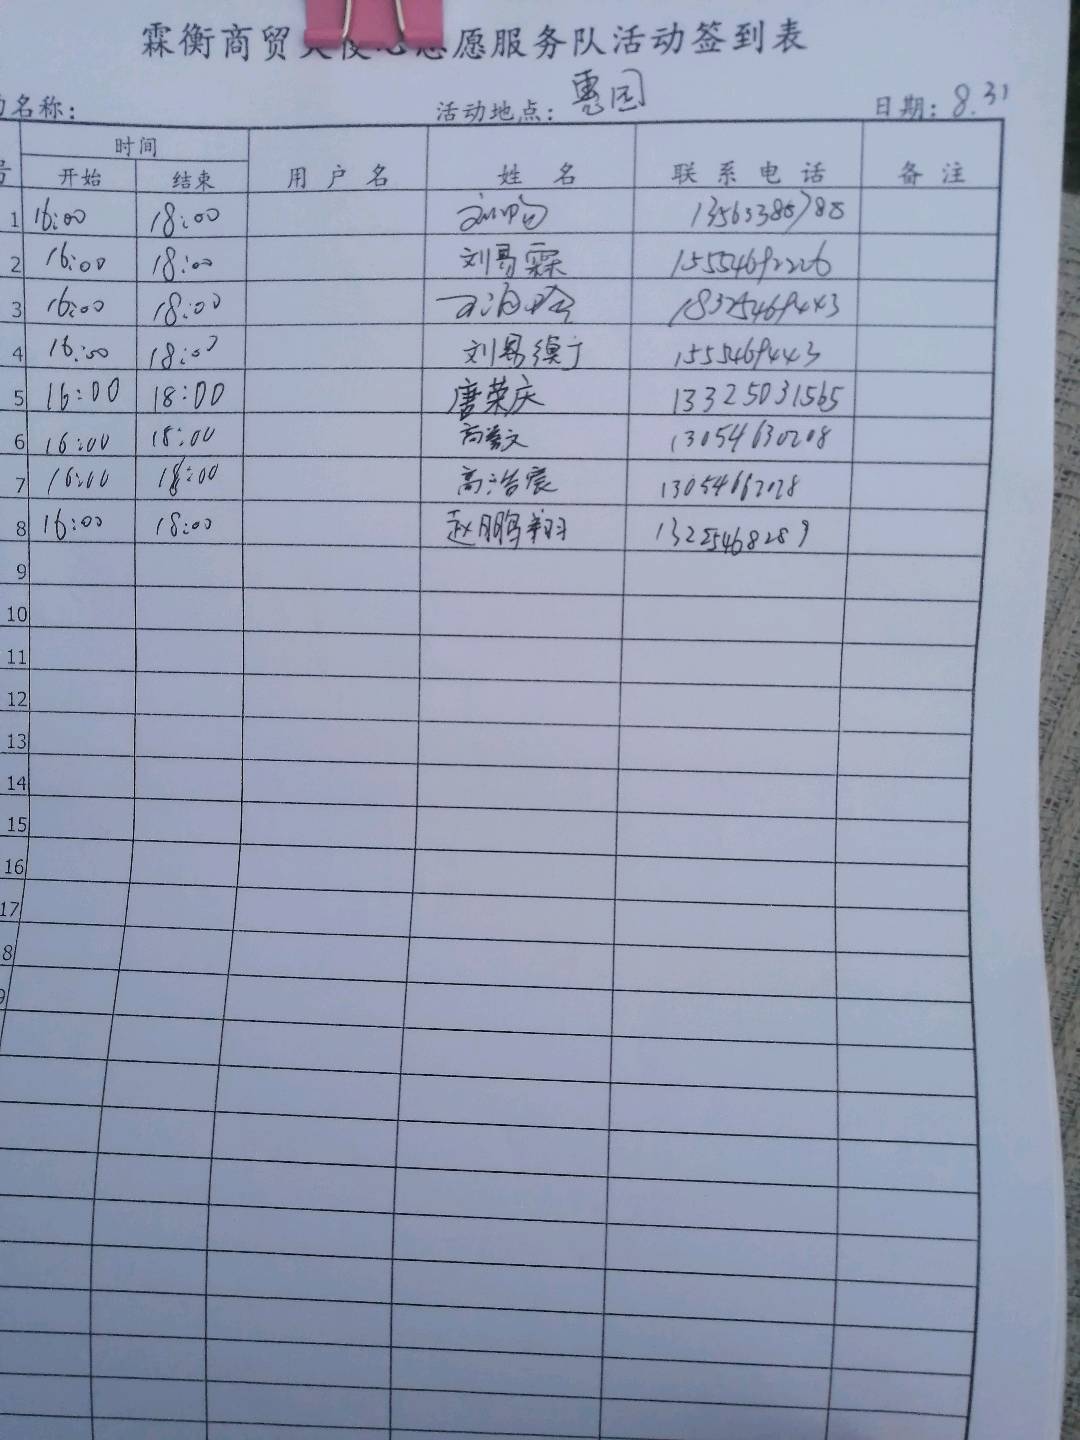 霖衡商贸天使心志愿服务队活动签到表
动名称: 活动地点: 惠园 日期: 8.31
号 时间 用户名 姓名 联系电话 备注
开始 结束
1 16:00 18:00 13563385785
2 16:00 18:00 刘易霖 15554692226
3 16:00 18:00 18325469443
4 16:00 18:00 刘易 1555469443
5 16:00 18:00 唐荣庆 13325031565
6 16:00 18:00 13054630208
7 16:00 18:00 高浩宸
8 16:00 18:00 赵鹏翔 13225468289
9
10
11
12
13
14
15
16
17
8
9